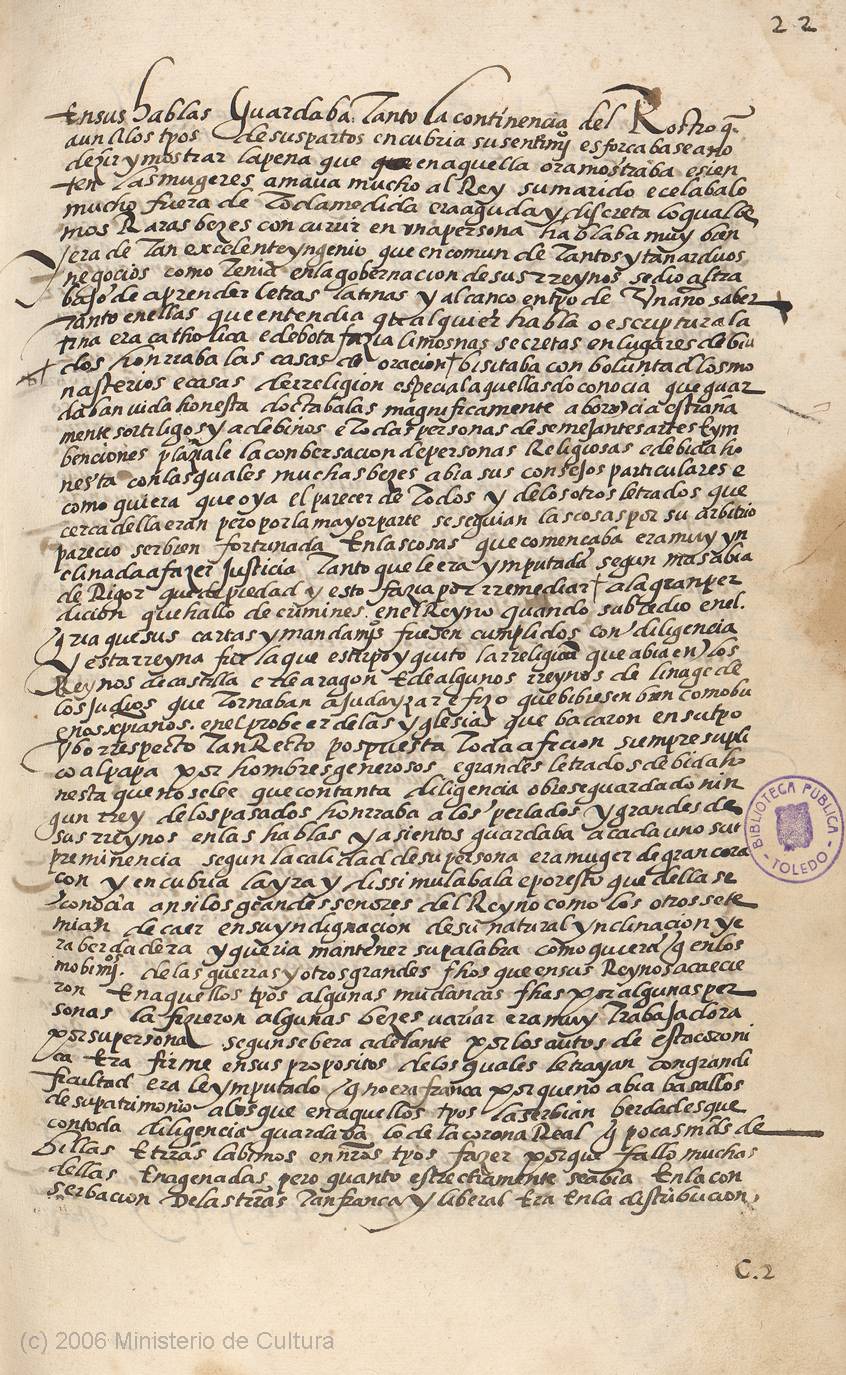 22
En sus hablas Guardaba Tanto la continencia del Rostro q̃
aun ~ los tpõs de sus partos encubria su sentimjº esforcabase a no
dezir y mostrar la pena que en aquella ora mostraba e sien
ten las mugeres amaua mucho al Rey su marido e celabalo
mucho fuera de Toda medida era aguda y discreta lo qual be
mos Raras bezes concurrir en vna persona hablaba muy bien
y era de Tan excelente yngenio que en comun de Tantos y tan arduos
negocios como Tenia en la gobernacion de sus rreynos se dio al tra
bajo de aprender letras latinas y alcanco en tpõ de Vn año saber
Tanto en ellas que entendia qualquier habla o escruptura la
tina era catholica e debota fazia limosnas secretas en lugares debi
dos honrraba las casas de oracion bisitaba con boluntad los mo
nasterios e casas de rreligion especial aquellas do conocia que guar
daban vida honesta doctabalas magnificamente aborrecia estraña
mente sortiligos y adebinos e Todas personas de semejantes artes E ym
benciones plaziale la conbersacion de personas Religiosas e de bida ho
nesta con las quales muchas bezes abia sus consejos particulares e
como quiera que oya el parecer de Todos y de los otros letrados que
cerca della eran pero por la mayor parte se seguian las cosas por su arbitrio
parecio ser bien fortunada En las cosas que comencaba era muy yn
clinada a fazer Justicia Tanto que le era ymputada segun mas abia
de Rigor que de piedad y esto fazia por rremediar a la gran per
dicion que hallo de crimines en el Reyno quando subcedio en el.
qria que sus cartas y mandamjºs fuesen cumplidos con diligencia
y esta rreyna fue la que estirpo y quito la rreligion que abia en los
Reynos de castilla e de aragon E de algunos rreynos de linage de
los Judios que Tornaban a Judayzar e fizo que bibiesen bien como bu
enos xpianos. en el probeer de las yglesias que bacaron en su tpõ
Vbo rrespecto Tan Recto pospuesta Toda aficion siempre supli
co al papa por hombres generosos e grandes letrados de bida ho
nesta que no se lee que con tanta diligencia obiese guardado nin
gun rrey de los pasados honrraba a los perlados y grandes de
sus rreynos en las hablas y asientos guardaba a cada uno su
preminencia segun la calidad de su persona era muger de gran cora
con y encubria la yra y dissimulabala e por esto que della se
conocia ansi los grandes señores del Reyno como los otros se te
mian de caer en su yndignacion de su natural ynclinacion ye
ra berdadera y queria mantener su palabra como quiera q en los
mobimjºs. de las guerras y otros grandes fhos que en sus Reynos acaecie
ron En aquellos tpõs algunas mudancas fhas por algunas per
sonas la fizieron algunas bezes variar era muy Trabajadora
por su persona segun se bera adelante por los autos de esta coroni
ca Era firme en sus propositos de los quales letrayan con grandi
ficultad era le ymputado q no era franca porque no abia basallos
de su patrimonio a los que en aquellos tpõs la serbian berdad es que
con toda diligencia guardaba lo de la corona Real q pocas mds de
billas E trras la bimos en nrõs tpõs fazer porque fallo muchas
dellas Enagenadas pero quanto estrechamente se abia En la con
serbacion De las trras Tan franca y liberal Era En la distribucion
C.2
BIBLIOTECA PUBLICA - TOLEDO -
(c) 2006 Ministerio de Cultura